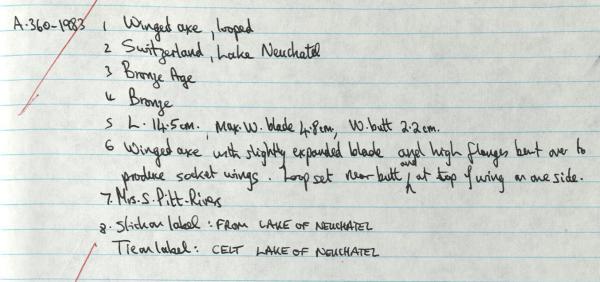 A.360-1983 1 Winged axe, looped
2 Switzerland, Lake Neuchatel
3 Bronze Age
4 Bronze
5 L. 14.5cm. Max. W. blade 4.8cm, W. butt 2.2cm.
6 Winged axe with slightly expanded blade and high flanges bent over to
produce socket wings. Loop set near butt and at top of wing on one side.
7. Mrs. S. Pitt-Rivers
8. Stick on label : FROM LAKE OF NEUCHATEL
Tie on label : CELT LAKE OF NEUCHATEL